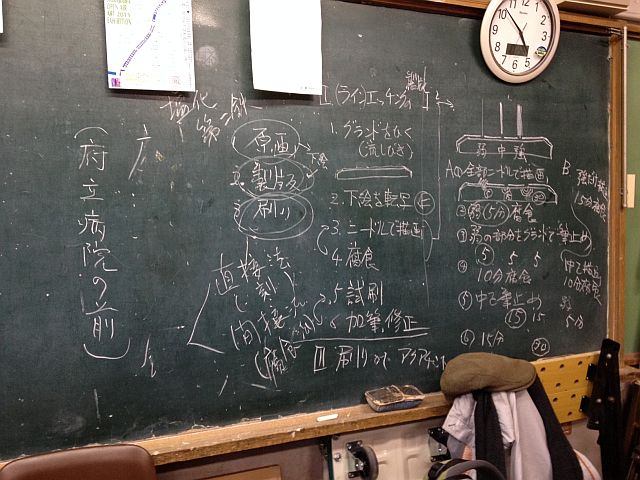 OPEN AIR
ART 2014
EXHIBITION
塩化
第二鉄
(府立病院の前)
原画
下絵
2. 製版
3. 刷り
直接法
間接法
II (ラインエッチングの
1. グランドをひく
(流しびき)
2. 下絵を転写
3. ニードルで描画
4. 腐食
5 試刷
加筆、修正
III 刷り
弱 中 強
Aの全部ニードルで描画
② 弱(5分)腐食
③ 弱の部分をグランドで筆止め
5 5 5
④ 10分腐食
⑤ 中を筆止め
15 15
⑥ 15分
20
B 強だけ描画
15分腐食
中を描画
10分腐食
弱
5分